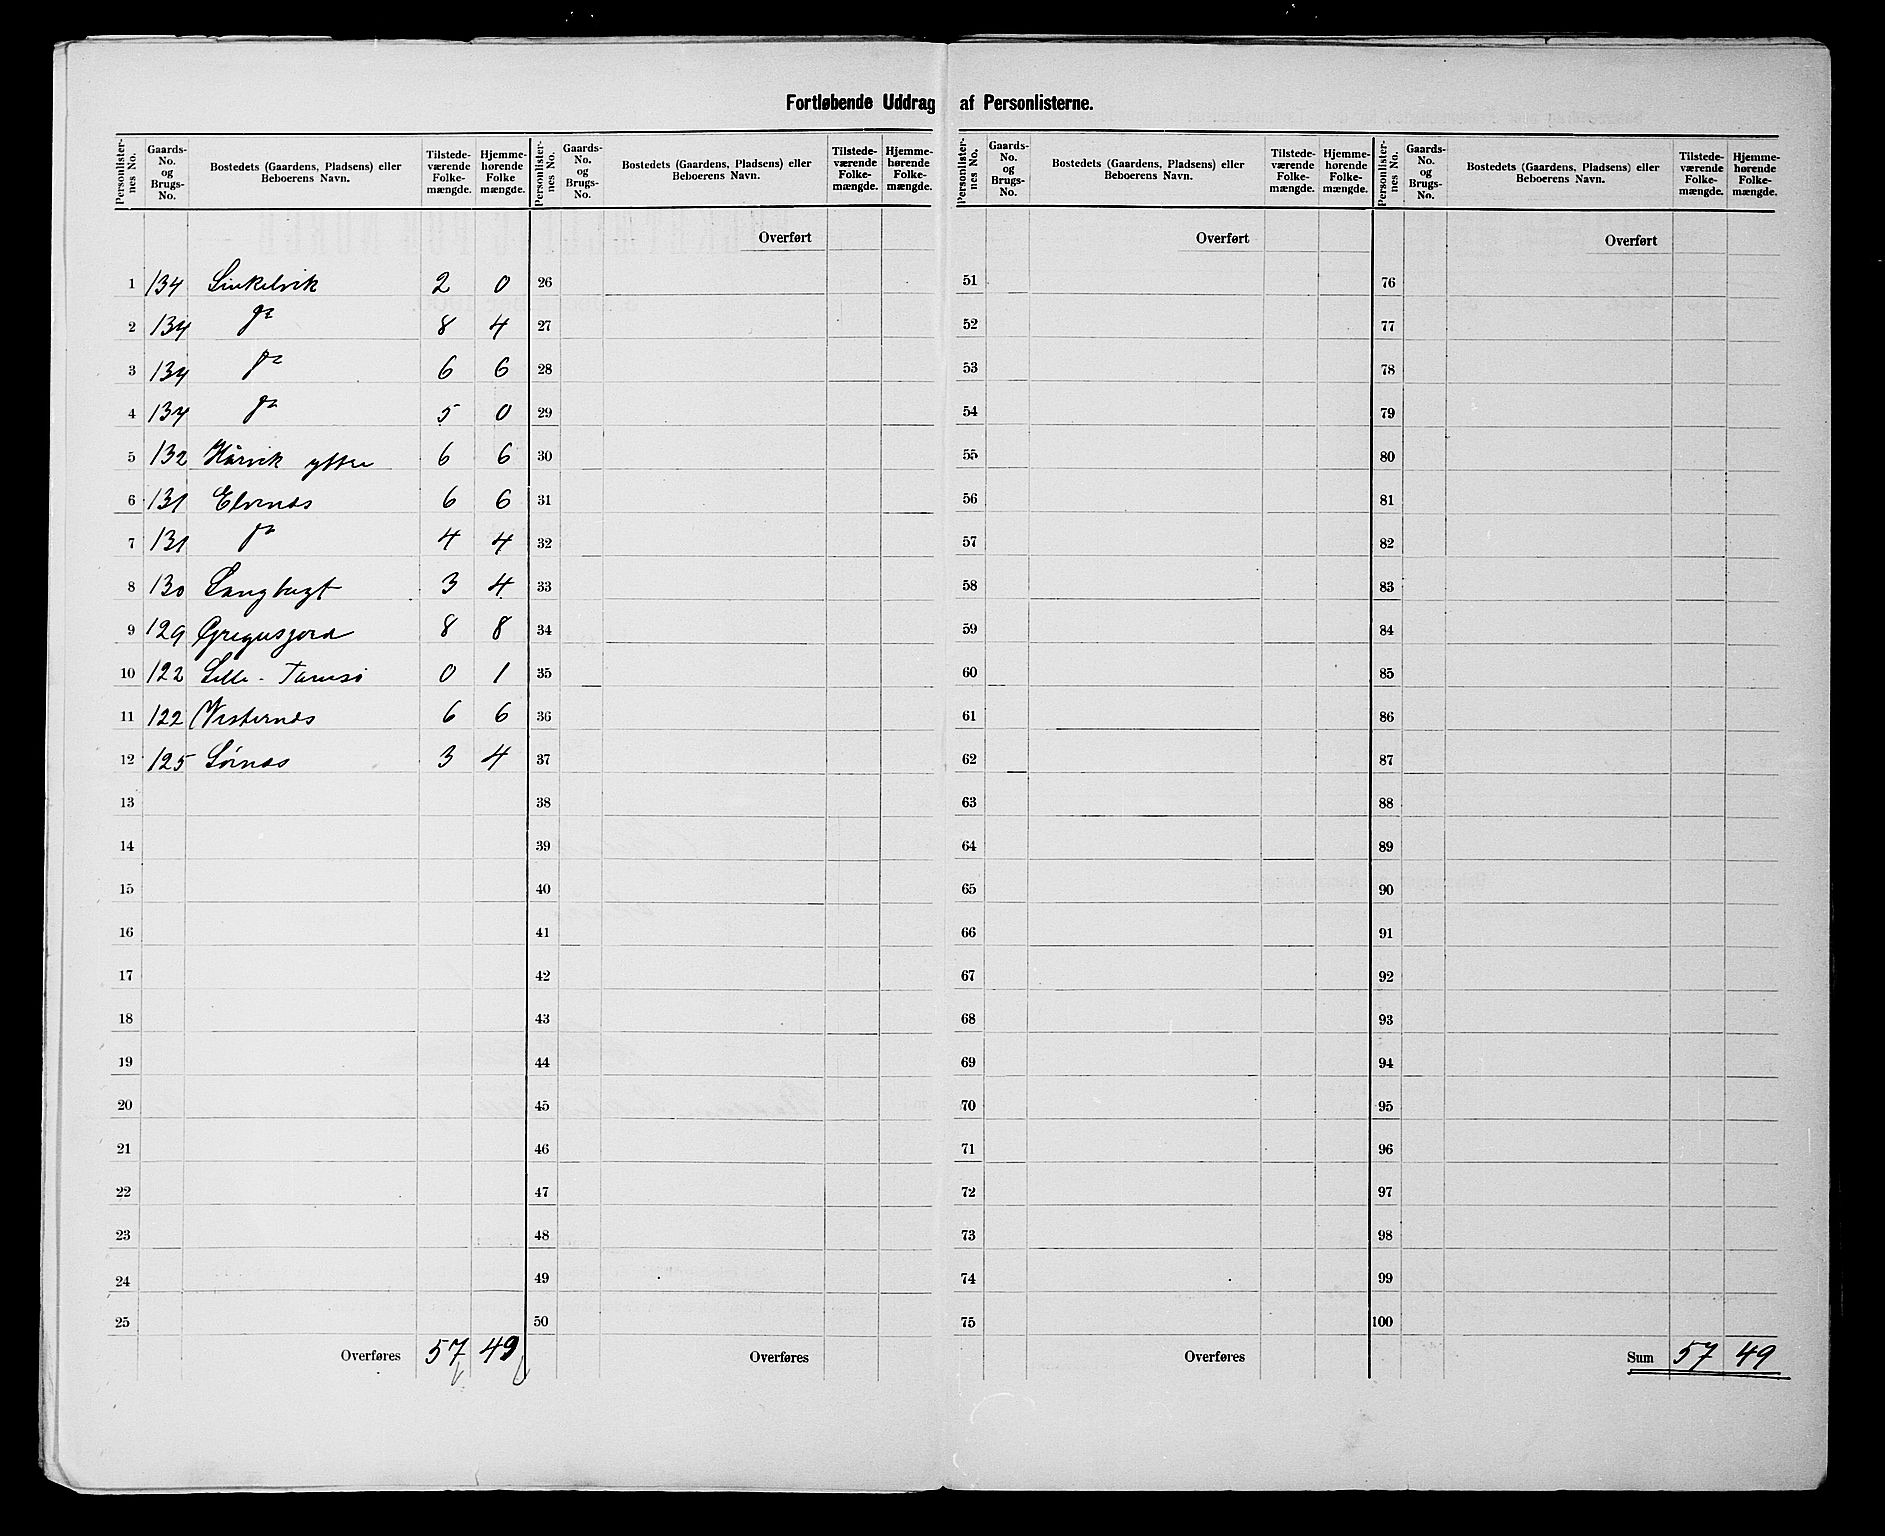 Fortløbende Uddrag af Personlisterne.
Personlister-nes No. Gaards-No. og Brugs-No. Bostedets (Gaardens, Pladsens) eller Beboerens Navn. Tilstede-værende Folke-mængde. Hjemme-hørende Folke mængde.
Personlister-nes No. Gaards-No. og Brugs-No. Bostedets (Gaardens, Pladsens) eller Beboerens Navn. Tilstede-værende Folke-mængde. Hjemme-hørende Folke-mængde.
Personlister-nes No. Gaards-No. og Brugs-No. Bostedets (Gaardens, Pladsens) eller Beboerens Navn. Tilstede-værende Folke-mængde. Hjemme-hørende Folke-mængde.
Personlister-nes No. Gaards-No. og Brugs-No. Bostedets (Gaardens, Pladsens) eller Beboerens Navn. Tilstede-værende Folke-mængde. Hjemme-hørende Folke-mængde.
Overført Overført Overført
1 134 Sinkelvik 2 0 26 51 76
2 134 do 8 4 27 52 77
3 134 do 6 6 28 53 78
4 134 do 5 0 29 54 79
5 132 Hårvik yttre 6 6 30 55 80
6 131 Elvenæs 6 6 31 56 81
7 131 do 4 4 32 57 82
8 130 Langbugt 3 4 33 58 83
9 129 Gregusjord 8 8 34 59 84
10 122 Lille - 0 1 35 60 85
11 122 Vesternæs 6 6 36 61 86
12 125 Sørnæs 3 4 37 62 87
13 38 63 88
14 39 64 89
15 40 65 90
16 41 66 91
17 42 67 92
18 43 68 93
19 44 69 94
20 45 70 95
21 46 71 96
22 47 72 97
23 48 73 98
24 49 74 99
25 50 75 100
Overføres 57 49 Overføres Overføres Sum 57 49